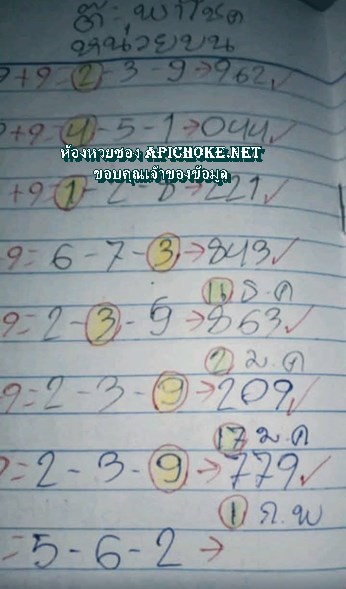 ตี๋ะ พาโชค
หน่วยบน
9+9=2-3-9→962✓
+9=4-5-1→044✓
ห้องหวยซอง APICHOKE.NET
ขอบคุณเจ้าของข้อมูล
+9=1-2-8→221✓
9=6-7-3→843✓
16 ธ.ค
9=2-3-9→863✓
2 ม.ค
9=2-3-9→209✓
17 ม.ค
=2-3-9→779✓
1 ก.พ
=5-6-2→